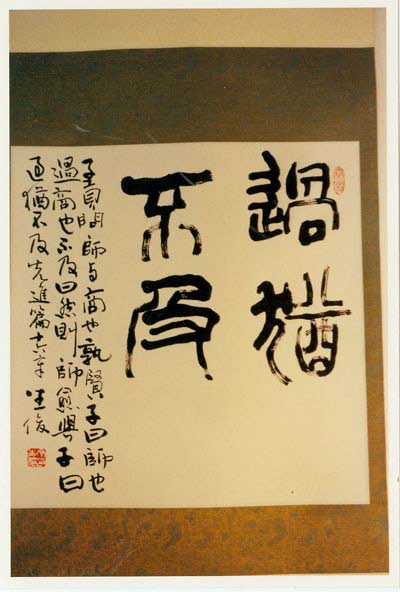 過猶
不及
子貢問師与商也孰賢子曰師也
過商也不及曰然則師愈與子曰
過猶不及先進篇十六章